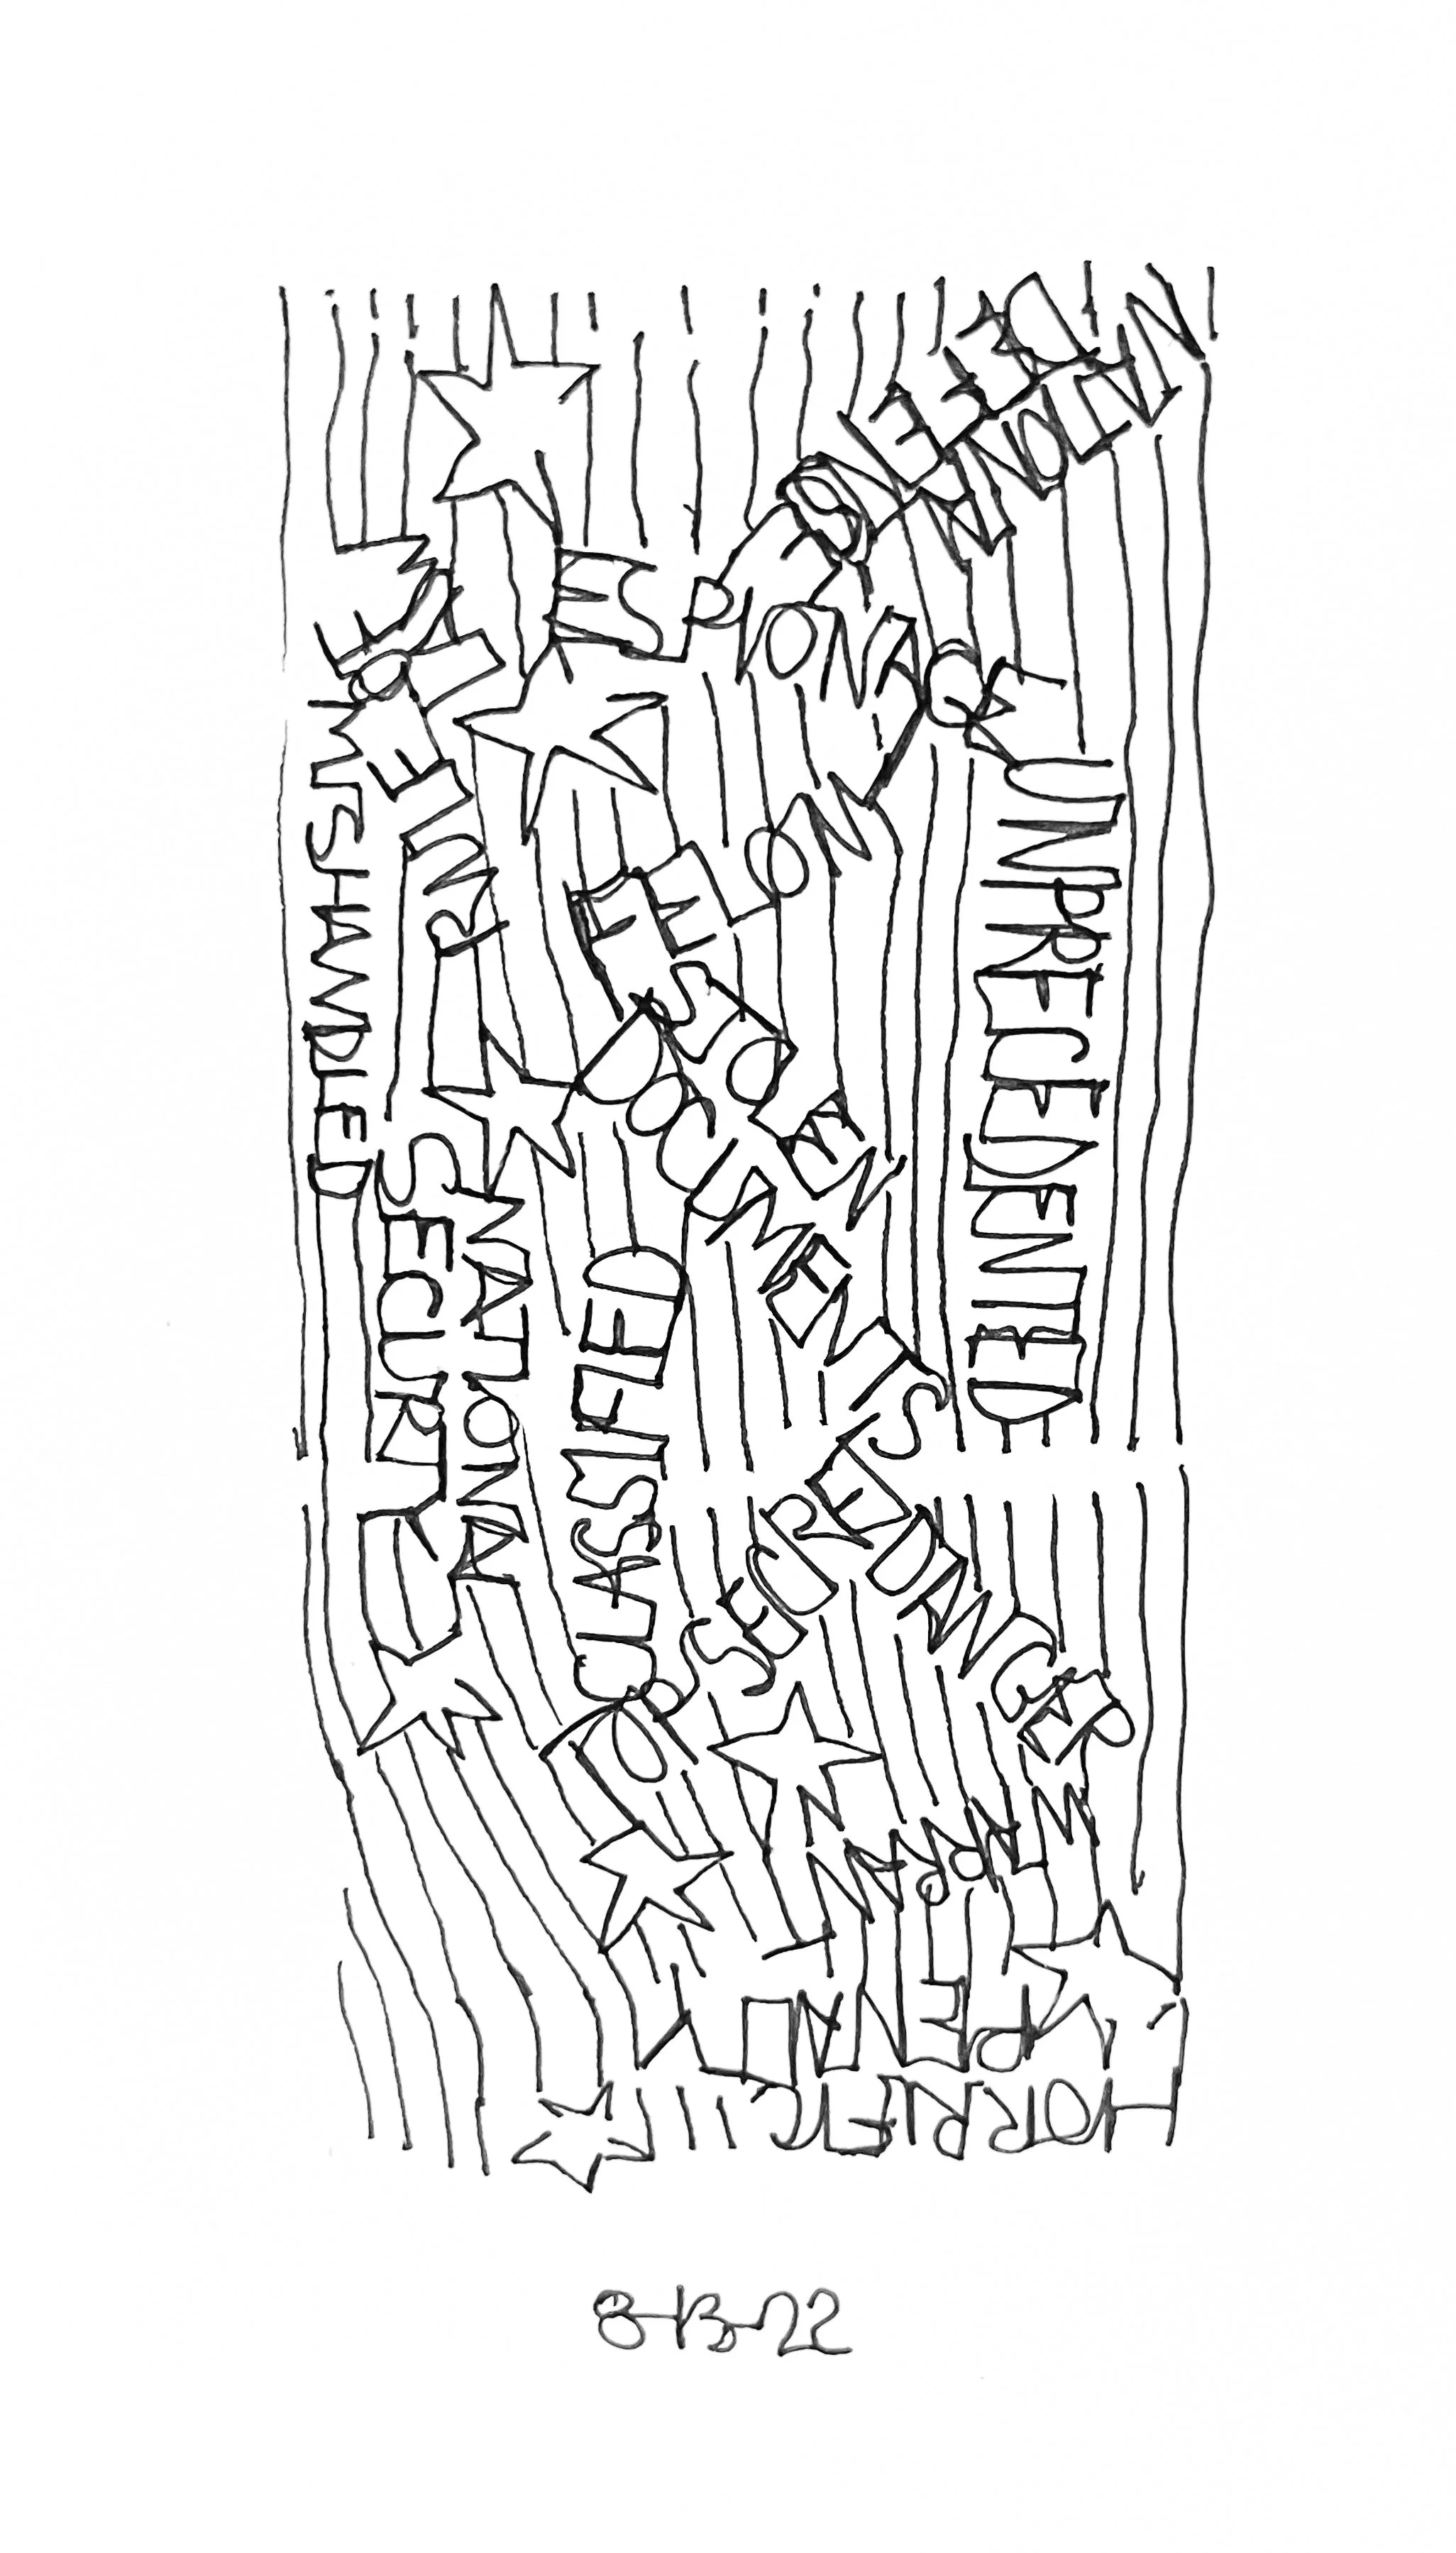 NATIONAL
DEFENSE
ESPIONAGE
UNPRECEDENTED
MISHANDLED
FELON
STOLEN
DOCUMENTS
NATIONAL
SECURITY
CLASSIFIED
TOP SECRET
DANGER
WARRANT
PENALTY
HORRIFIC
8-13-22